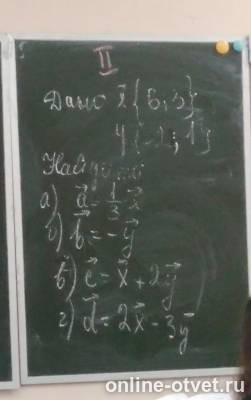 II
Дано x⃗{6;3}
y⃗{-2;1}
Найдите
а) a⃗ = 1/3 x⃗
б) b⃗ = -y⃗
в) c⃗ = x⃗ + 2y⃗
г) d⃗ = 2x⃗ - 3y⃗
online-otvet.ru